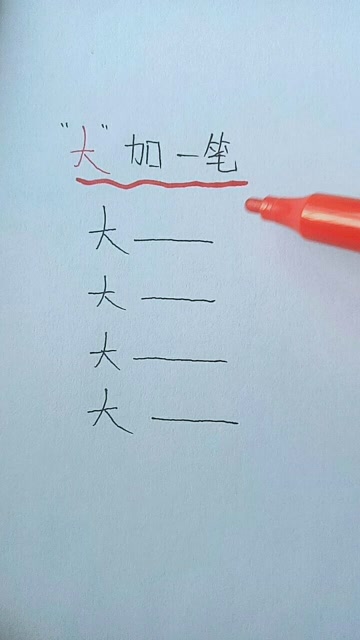 "大"加一笔
大 ———
大 ———
大 ———
大 ———